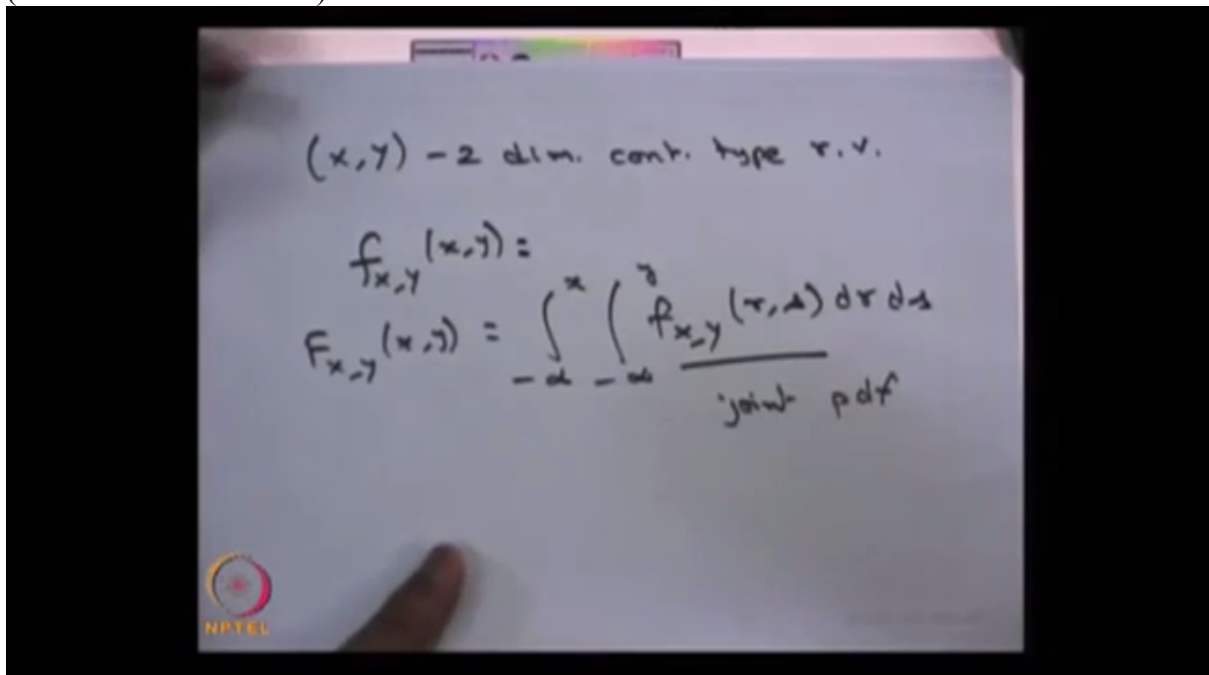 (x,y) - 2 dim. cont. type r.v.
f_{x,y}(x,y) =
F_{x,y}(x,y) = ∫_{-∞}^{x} ∫_{-∞}^{y} f_{x,y}(r,s) dr ds
joint pdf
NPTEL